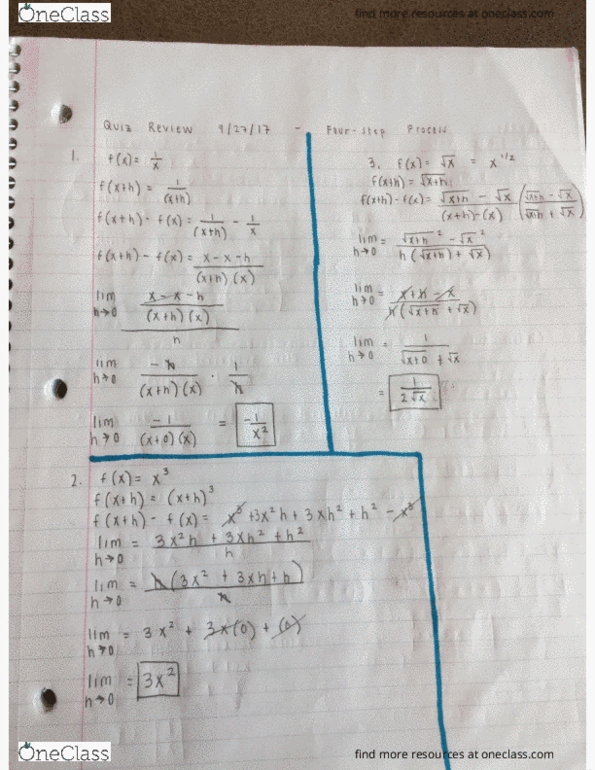 OneClass
find more resources at oneclass.com
Quiz Review 9/27/17 - Four-Step Process
1. f(x) = 1/x
f(x+h) = 1/(x+h)
f(x+h) - f(x) = 1/(x+h) - 1/x
f(x+h) - f(x) = x-x-h/(x+h)(x)
lim h→0 x-x-h/(x+h)(x) / h
lim h→0 -h/(x+h)(x) · 1/h
lim h→0 -1/(x+0)(x) = -1/x²
3. f(x) = √x = x^1/2
f(x+h) = √x+h
f(x+h) - f(x) = √x+h - √x/(x+h)-(x) (√x+h - √x/√x+h + √x)
lim h→0 = √x+h² - √x²/h(√x+h) + √x)
lim h→0 = x+h-x/h(√x+h + √x)
lim h→0 = 1/√x+0 + √x
= 1/2√x
2. f(x) = x³
f(x+h) = (x+h)³
f(x+h) - f(x) = x³ + 3x²h + 3xh² + h² - x³
lim h→0 = 3x²h + 3xh² + h²/h
lim h→0 = h(3x² + 3xh + h)/h
lim h→0 = 3x² + 3x(0) + (0)
lim h→0 = 3x²
OneClass
find more resources at oneclass.com